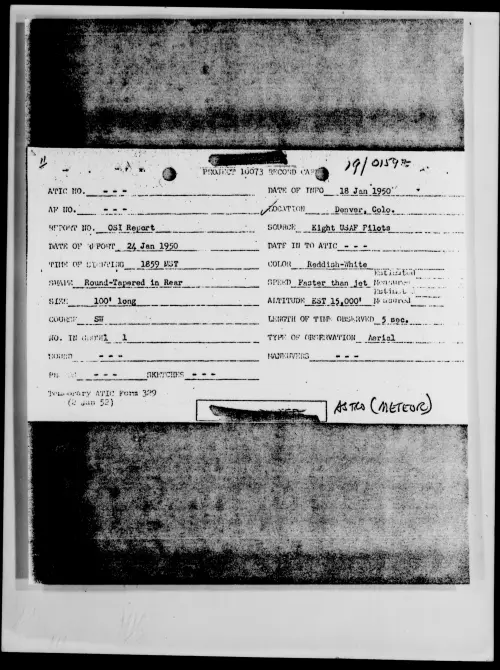 PROJECT 10073 RECORD CARD 19/0159Z
ATIC NO. - - - DATE OF INFO 18 Jan 1950
AF NO. - - - LOCATION Denver, Colo.
REPORT NO. OSI Report SOURCE Eight USAF Pilots
DATE OF REPORT 24 Jan 1950 DATE IN TO ATIC - - -
TIME OF SIGHTING 1859 MST COLOR Reddish-White
SHAPE Round-Tapered in Rear SPEED Faster than jet Estimated Measured
SIZE 100' long ALTITUDE EST 15,000' Estimat Measured
COURSE SW LENGTH OF TIME OBSERVED 5 sec.
NO. IN GROUP 1 TYPE OF OBSERVATION Aerial
SOUND - - - MANEUVERS - - -
- - - SKETCHES - - -
Temporary ATIC Form 329
(2 Jan 52)
ASTRO (METEOR)